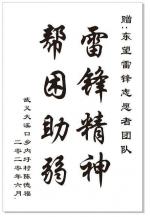 赠：东望雷锋志愿者团队
雷锋精神
帮困助弱
武义大溪口乡内圩村陈德福
二零二零年六月